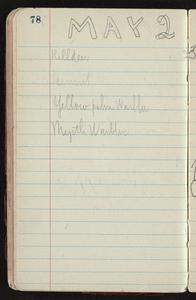 78
MAY 2
Killdeer
Yellow palm Warbler
Myrtle Warbler